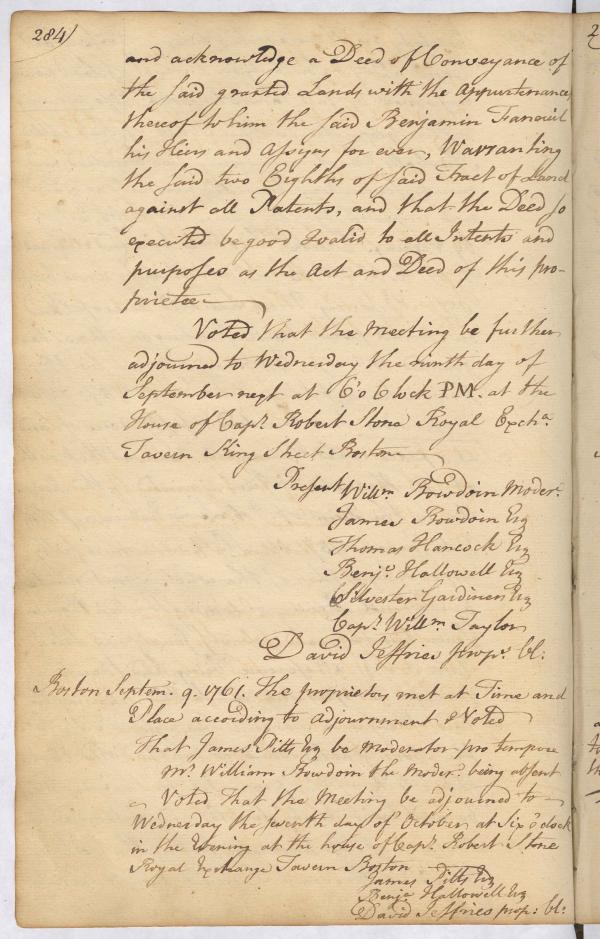 284)
and acknowledge a Deed of Conveyance of
the said granted Lands with the Appurtenances
thereof to him the said Benjamin Faneuil
his Heirs and Assigns for ever, Warranting
the said two Eighths of said Tract of Land
against all Patents, and that the Deed so
executed be good & valid to all Intents and
purposes as the Act and Deed of this pro-
prietee
Voted that the Meeting be further
adjourned to Wednesday the ninth day of
September next at 6 o Clock PM. at the
House of Capt. Robert Stone Royal Excha.
Tavern King Street Boston
Present Willm. Bowdoin Moder.
James Bowdoin Esq
Thomas Hancock Esq
Benja. Hallowell Esq
Silvester Gardiner Esq
Capt. Willm. Taylor
David Jeffries prop. Cl:
Boston Septem. 9. 1761. The proprietors met at Time and
Place according to adjournment & Voted
That James Pitts Esq be moderator pro tempore
Mr. William Bowdoin the Moder. being absent
Voted That the Meeting be adjourned to
Wednesday the seventh day of October at Six o'clock
in the Evening at the house of Capt. Robert Stone
Royal Exchange Tavern Boston
James Pitts Esq
Benja. Hallowell Esq
David Jeffries prop: Cl: